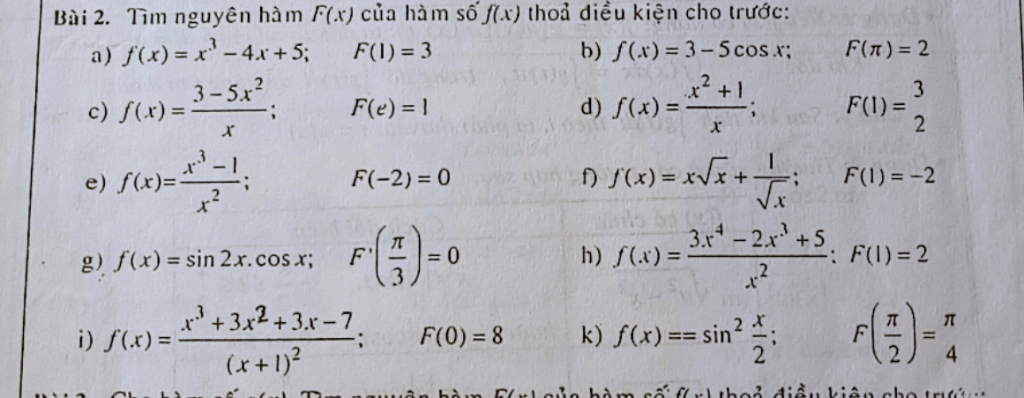 Bài 2. Tìm nguyên hàm F(x) của hàm số f(x) thoả điều kiện cho trước:
a) f(x) = x³ − 4x + 5; F(1) = 3 b) f(x) = 3 − 5cos x; F(π) = 2
c) f(x) = (3 − 5x²)/x; F(e) = 1 d) f(x) = (x² + 1)/x; F(1) = 3/2
e) f(x)= (x³ − 1)/x²; F(−2) = 0 f) f(x) = x√x + 1/√x; F(1) = −2
g) f(x) = sin 2x. cos x; F'(π/3) = 0 h) f(x) = (3x⁴ − 2x³ + 5)/x²; F(1) = 2
i) f(x) = (x³ + 3x² + 3x − 7)/(x + 1)²; F(0) = 8 k) f(x) == sin² x/2; F(π/2) = π/4